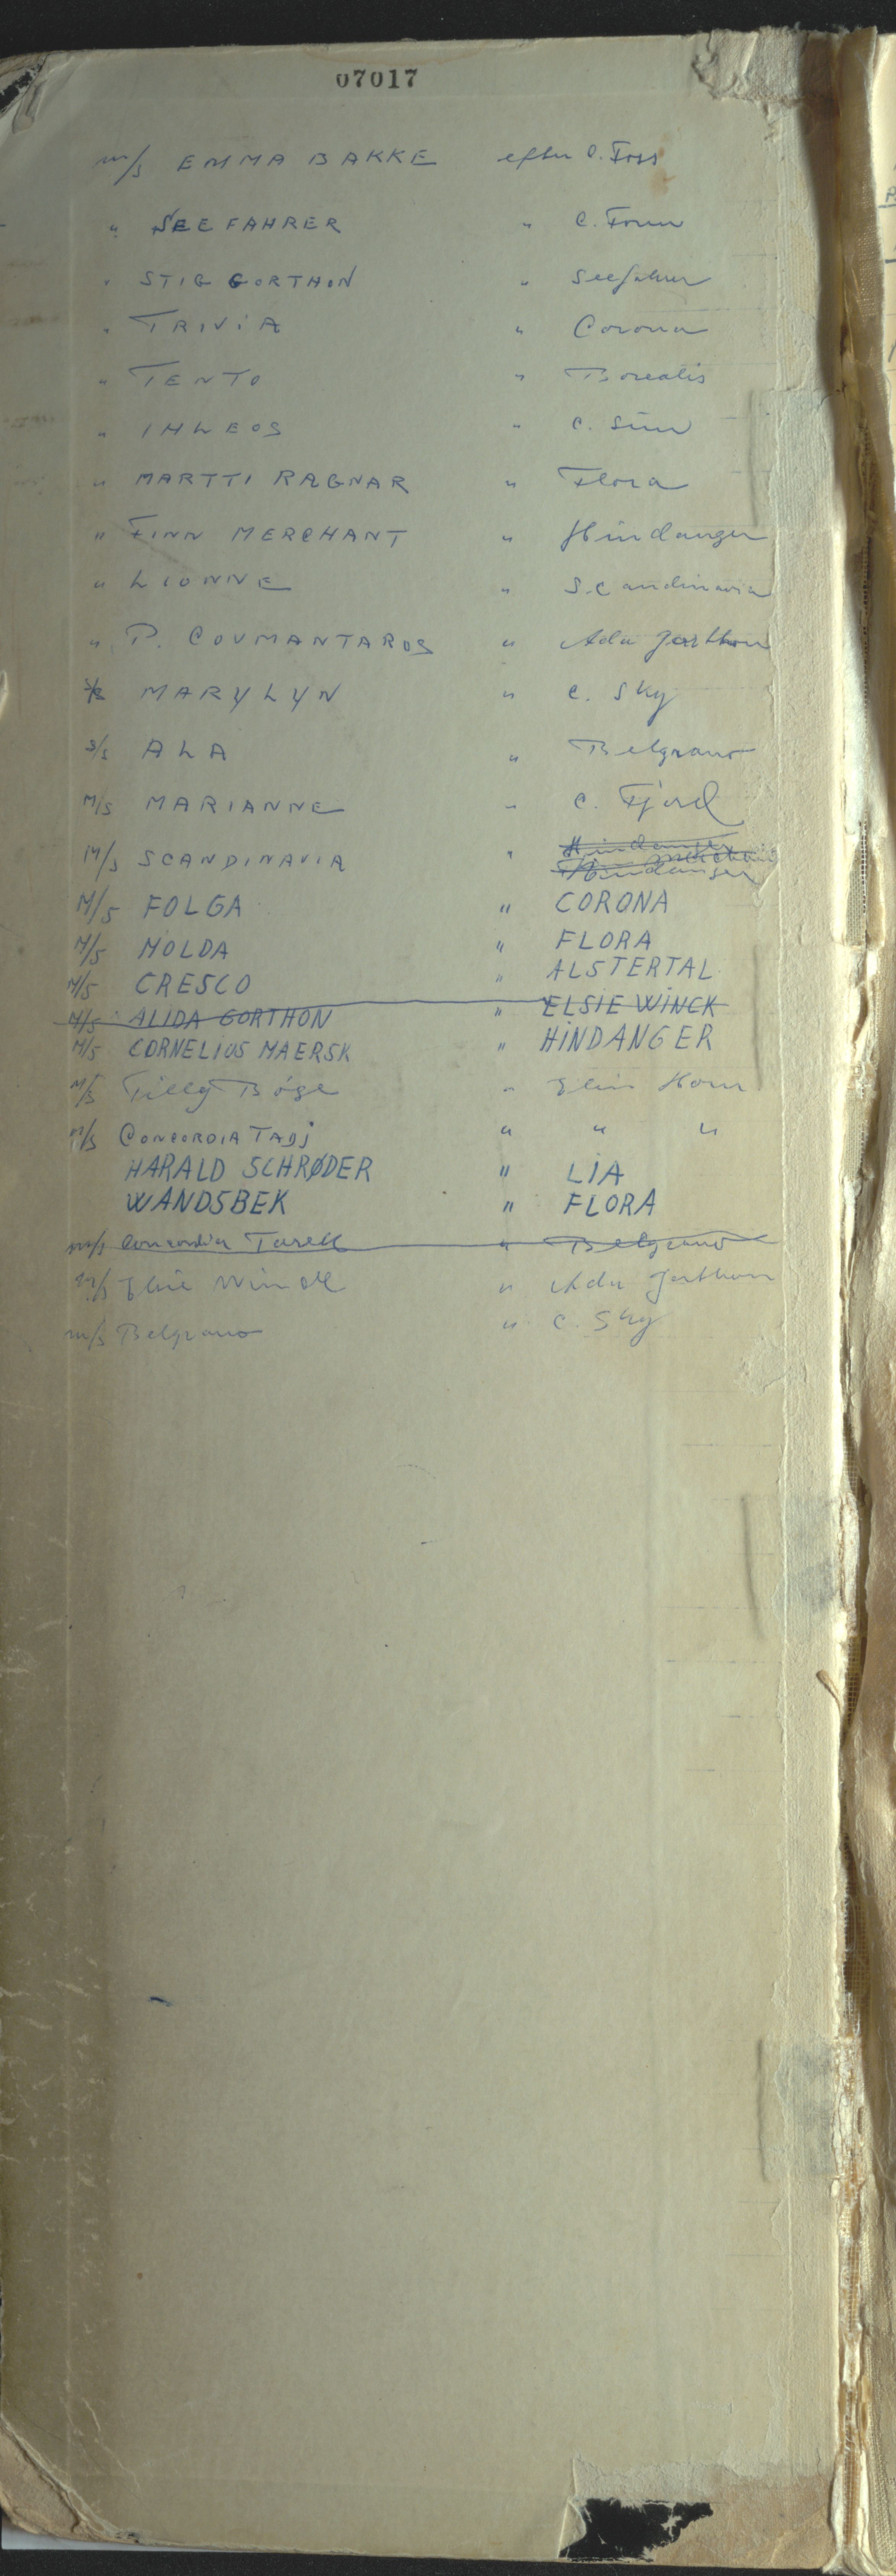 07017
m/s EMMA BAKKE efter C. Foss
" SEEFAHRER " C. Fonn
" STIG GORTHON " Seefahrer
" TRIVIA " Corona
" TENTO " Borealis
" IHLEOS " C. Sun
" MARTTI RAGNAR " Flora
" FINN MERCHANT " Hindanger
" LIONNE " Scandinavia
" P. COUMANTAROS " Ada Gorthon
MARYLYN " C. Sky
S/S ALA " Belgrano
M/S MARIANNE " C. Fjord
M/S SCANDINAVIA " Hindanger
Hindanger
M/S FOLGA " CORONA
M/S MOLDA " FLORA
M/S CRESCO " ALSTERTAL
M/S ALIDA GORTHON " ELSIE WINCK
M/S CORNELIUS MAERSK " HINDANGER
M/S Tilly Böge " Elin Horn
m/s CONCORDIA TADJ " " "
HARALD SCHRØDER " LIA
WANDSBEK " FLORA
m/s Concordia Tarek " Belgrano
m/s Elsie Winck " Ada Gorthon
m/s Belgrano " C. Sky